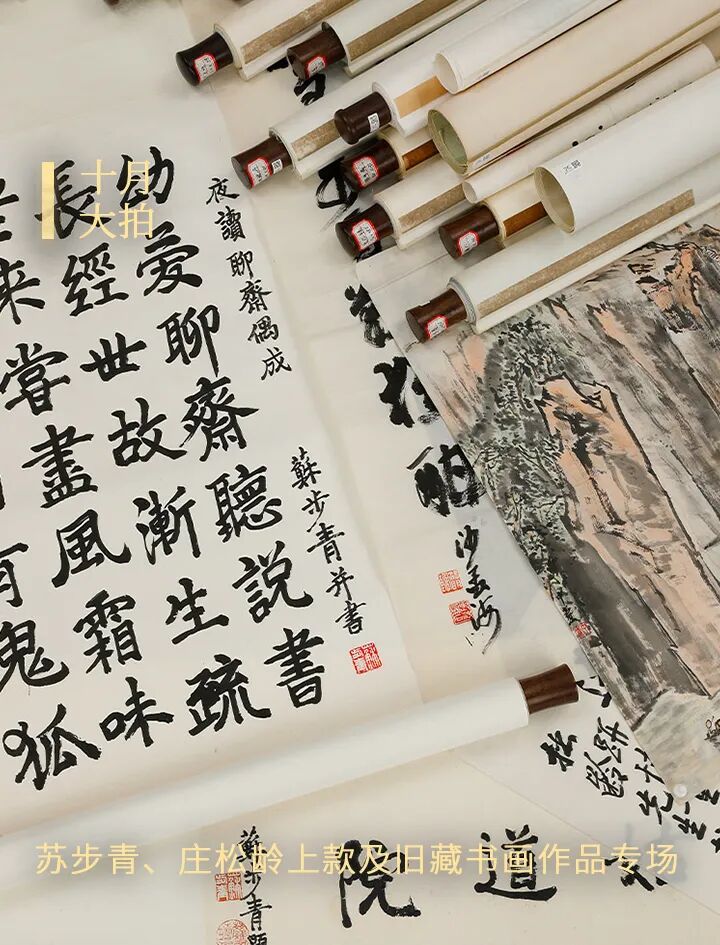 十月
大拍
夜讀聊齋偶成
蘇步青并書
幼愛聊齋聽說書
長經世故漸生疏
来嘗盡風霜味
有鬼狐
沙孟海
松齡先生
道院
蘇步青題
苏步青、庄松龄上款及旧藏书画作品专场